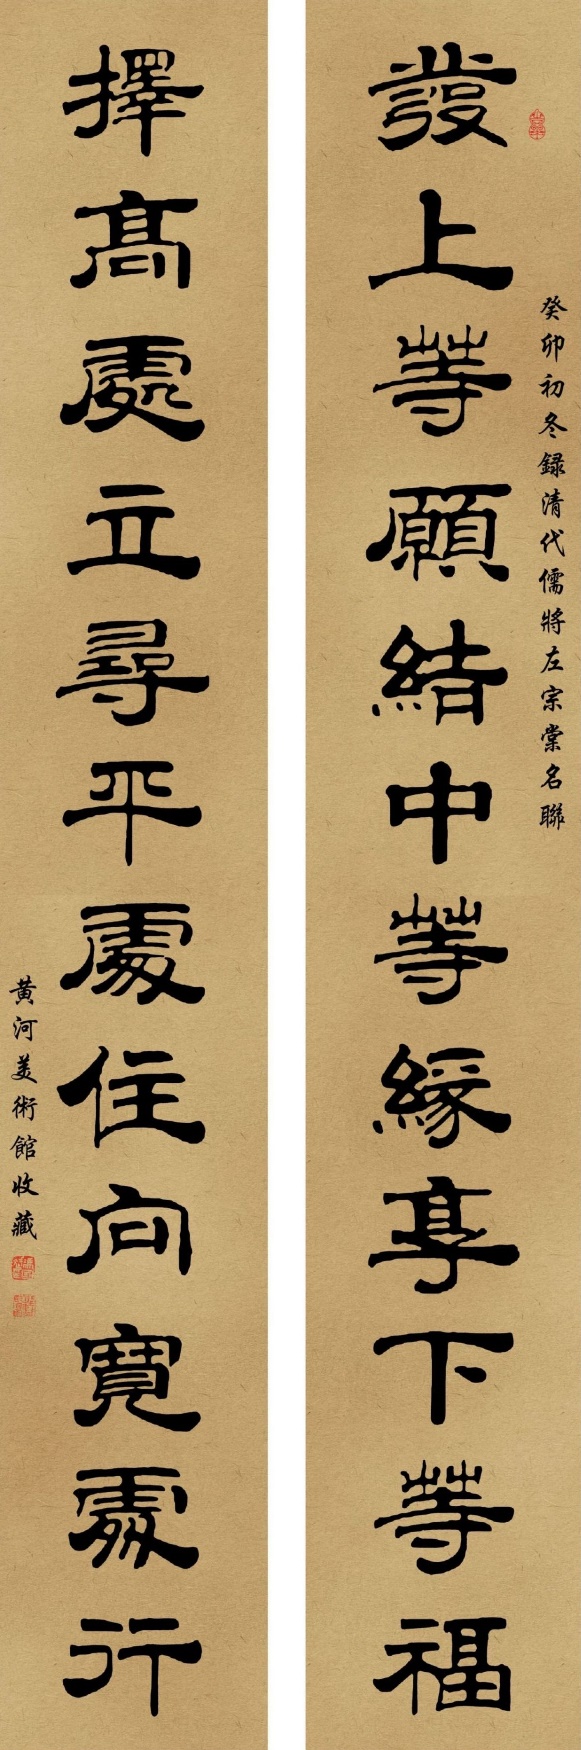 癸卯初冬録清代儒將左宗棠名聯
發上等願結中等緣享下等福
擇高處立尋平處住向寬處行
黄河美術館收藏